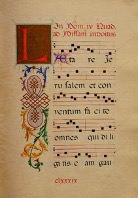 In Dom. iv Quad.
ad Missam introitus
LÆtare Je
rusalem et con
ventum facite
omnes qui dili
gitis eam gau